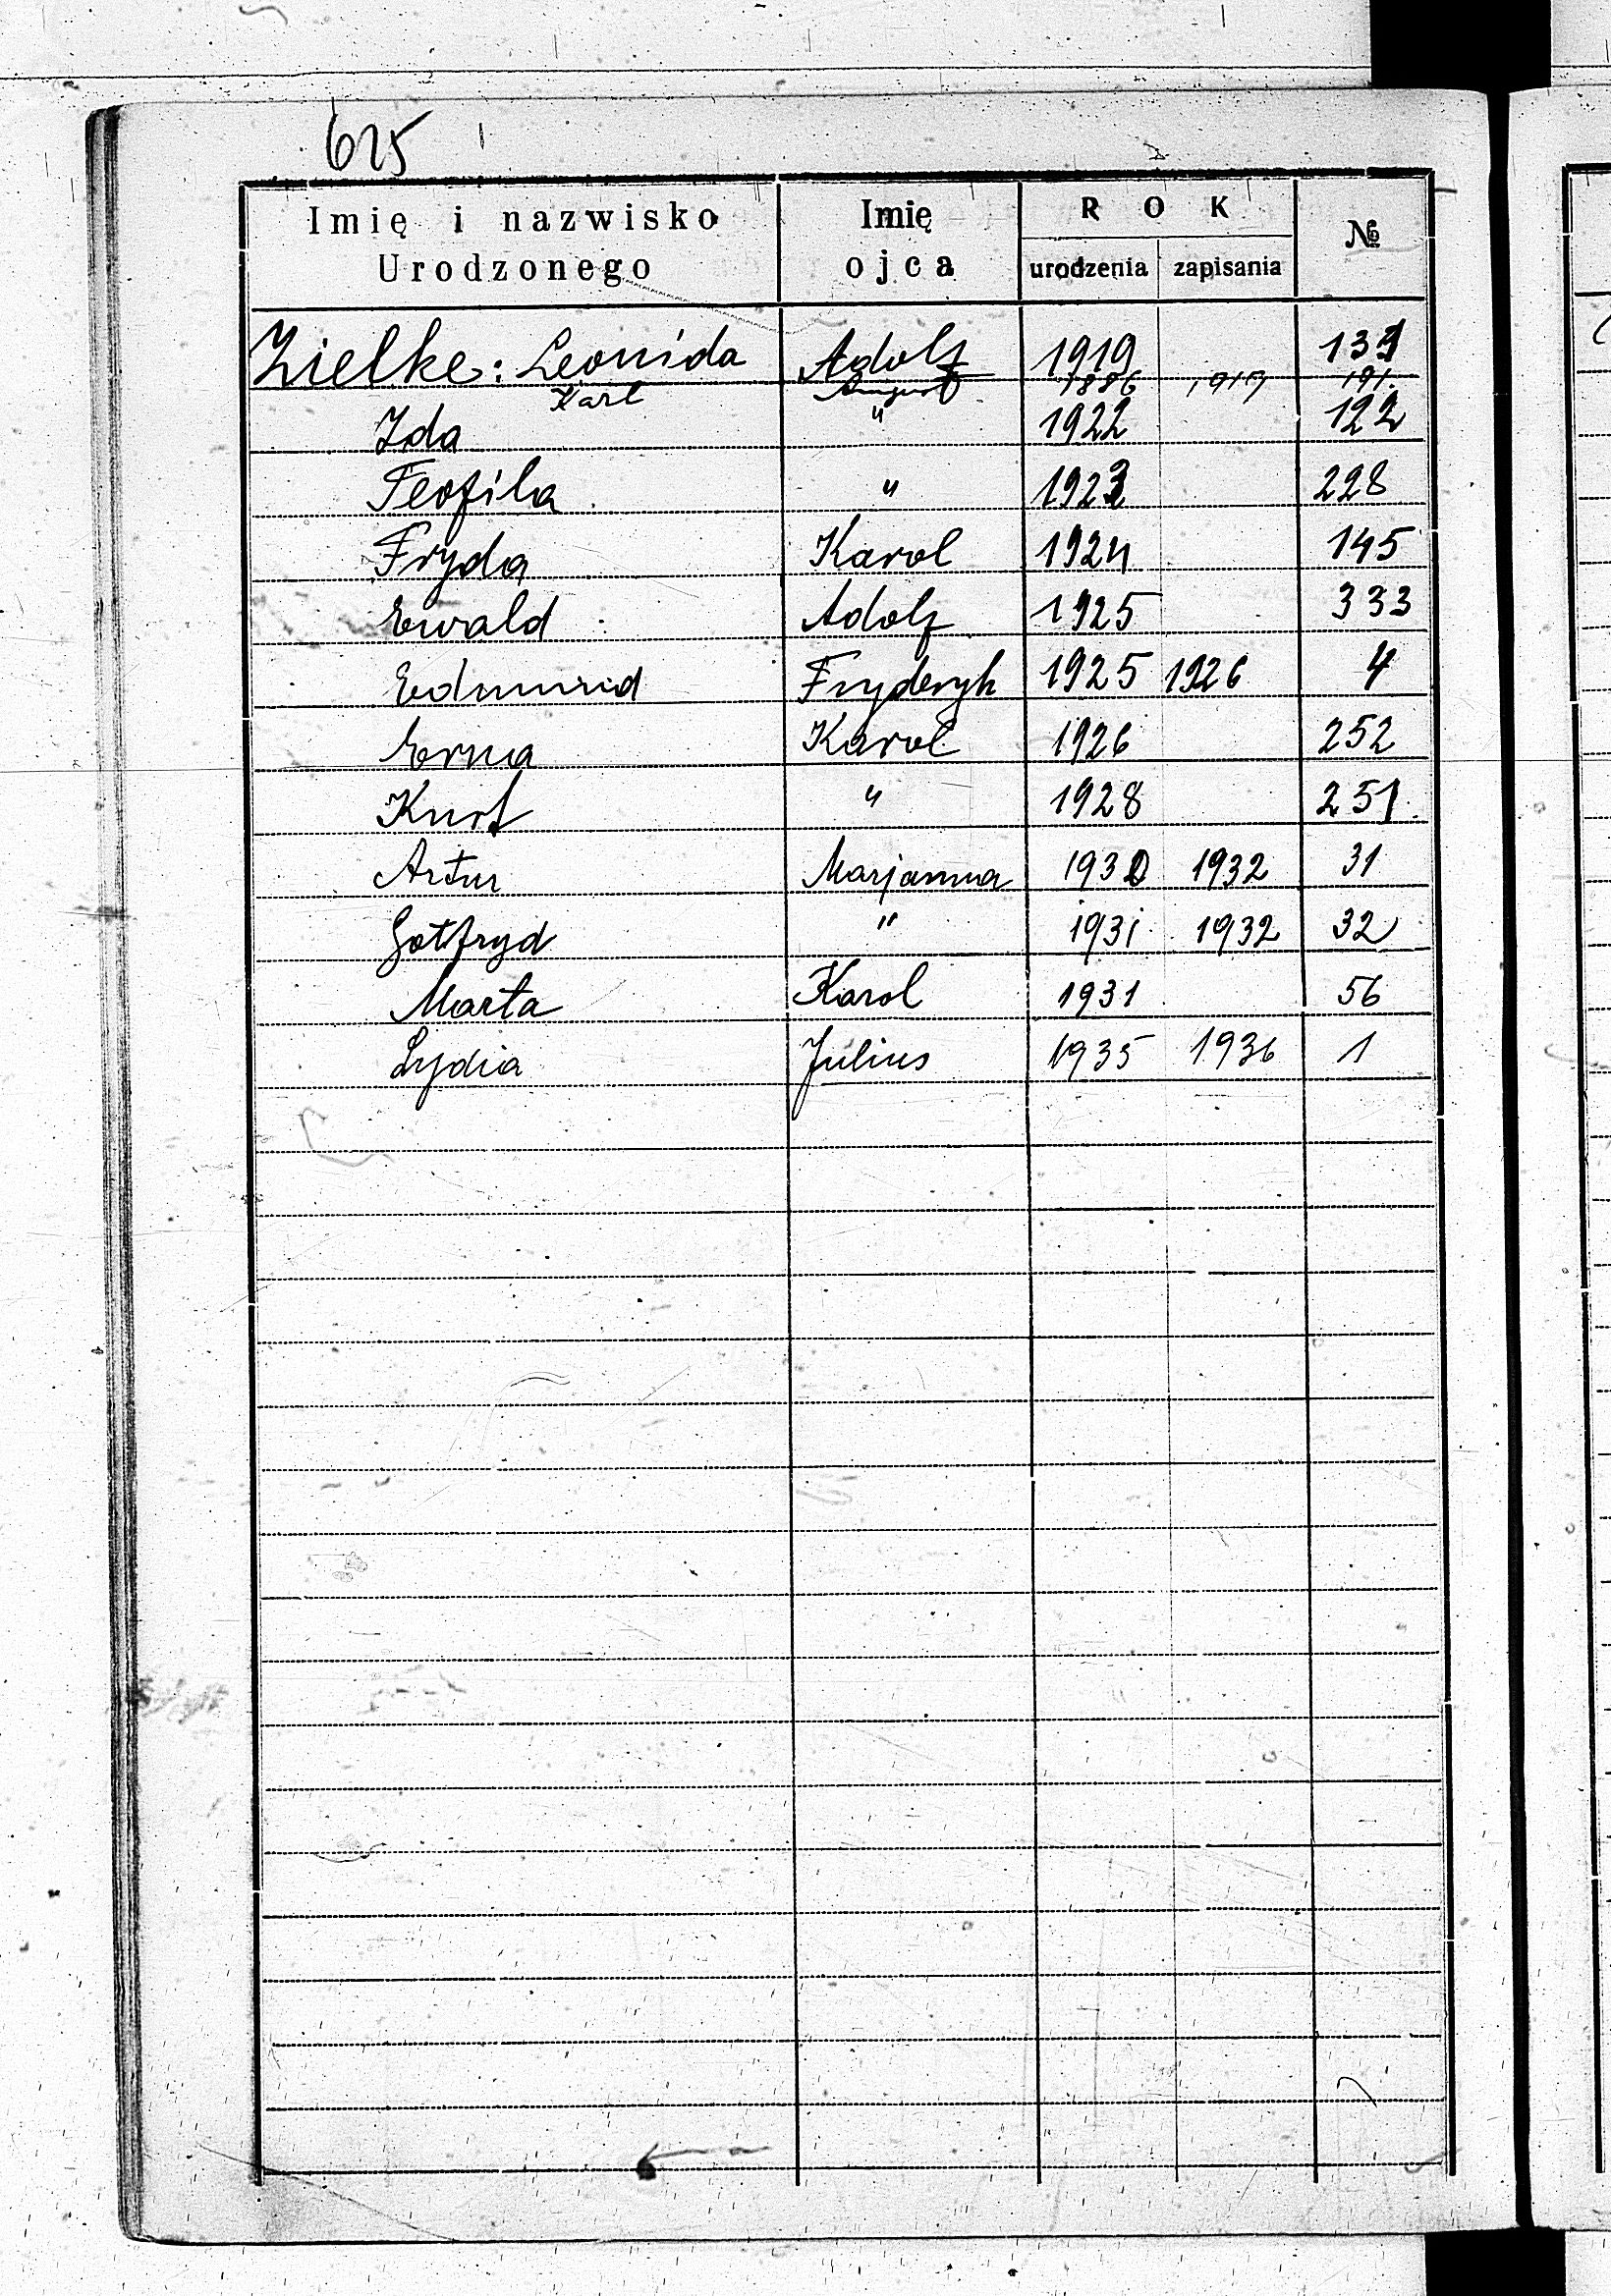 615
Imię i nazwisko Urodzonego Imię ojca ROK urodzenia zapisania №
Zielke: Leonida Adolf 1919 133
Karl August 1886 1919 191.
Ida " 1922 122
Teofila " 1923 228
Fryda Karol 1924 145
Ewald Adolf 1925 333
Edmund Fryderyk 1925 1926 4
Erna Karol 1926 252
Kurt " 1928 251
Artur Marjanna 1930 1932 31
Gotfryd " 1931 1932 32
Marta Karol 1931 56
Lydia Julius 1935 1936 1